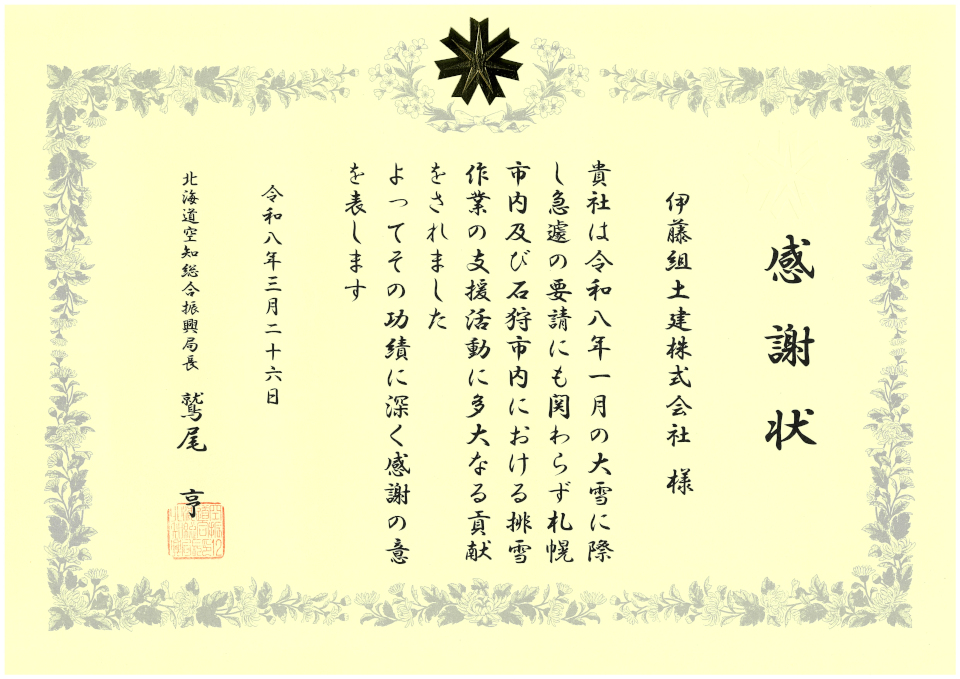 感謝状
伊藤組土建株式会社 様
貴社は令和八年一月の大雪に際
し急遽の要請にも関わらず札幌
市内及び石狩市内における排雪
作業の支援活動に多大なる貢献
をされました
よってその功績に深く感謝の意
を表します
令和八年三月二十六日
北海道空知総合振興局長 鷲尾 亨